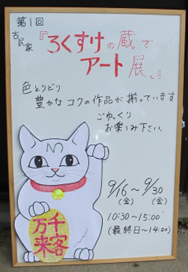 第1回
古民家
『ろくすけの蔵』で
アート展
色とりどり
豊かなココの作品が揃っています
ごゆっくり
お楽しみ下さい。
9/16〜9/30
(金) (金)
10:30〜15:00
(最終日〜14:00)
千客
万来